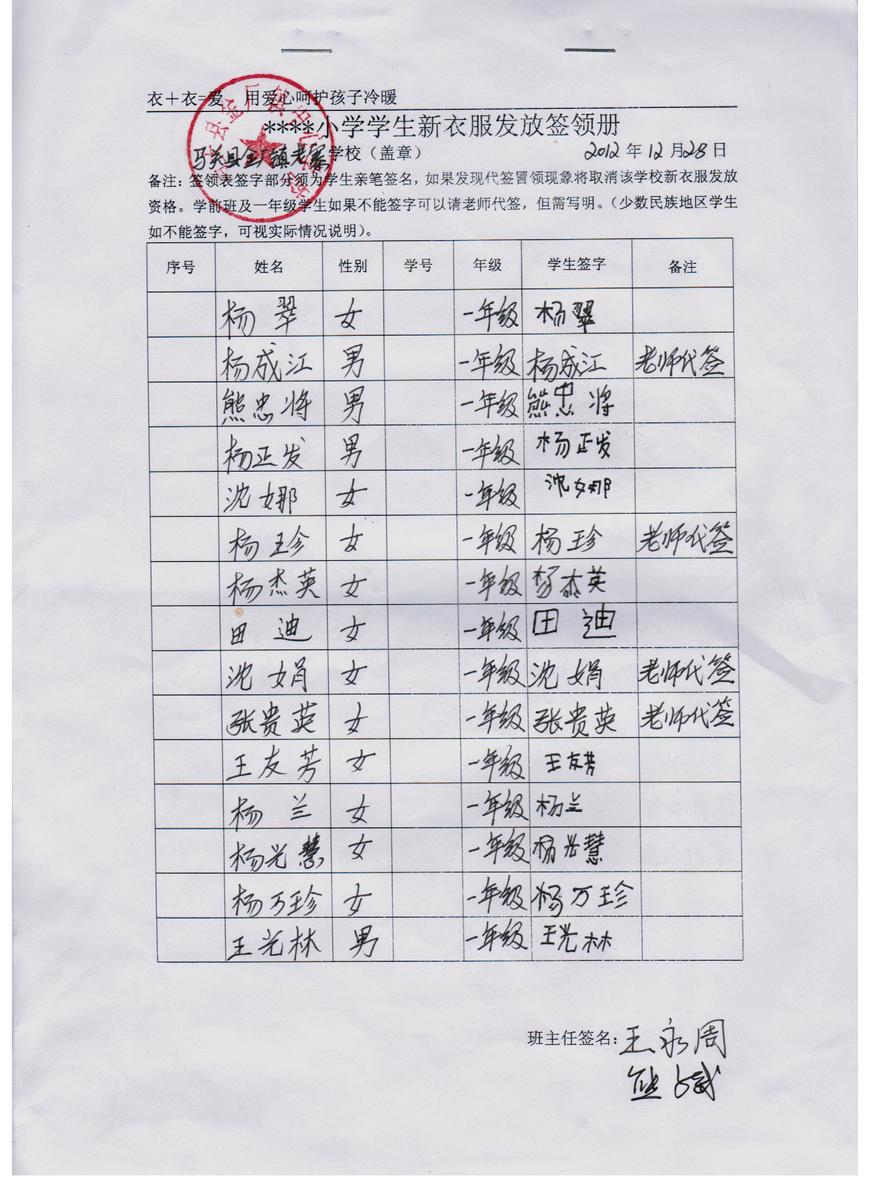 衣＋衣=爱　用爱心呵护孩子冷暖
****小学学生新衣服发放签领册
马关县金厂镇老寨学校（盖章） 2012年12月28日
备注：签领表签字部分须为学生亲笔签名，如果发现代签冒领现象将取消该学校新衣服发放
资格。学前班及一年级学生如果不能签字可以请老师代签，但需写明。（少数民族地区学生
如不能签字，可视实际情况说明）。
序号 姓名 性别 学号 年级 学生签字 备注
杨翠 女 一年级 杨翠
杨成江 男 一年级 杨成江 老师代签
熊忠将 男 一年级 熊忠将
杨正发 男 一年级 杨正发
沈娜 女 一年级 沈娜
杨珍 女 一年级 杨珍 老师代签
杨杰英 女 一年级 杨杰英
田迪 女 一年级 田迪
沈娟 女 一年级 沈娟 老师代签
张贵英 女 一年级 张贵英 老师代签
王友芳 女 一年级 王友芳
杨兰 女 一年级 杨兰
杨光慧 女 一年级 杨光慧
杨万珍 女 一年级 杨万珍
王光林 男 一年级 王光林
班主任签名：王永周